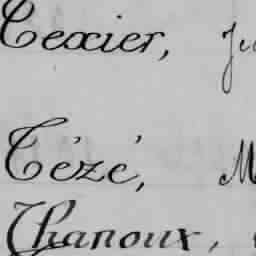 Texier, Ju
Tézé, M
Thanoux,